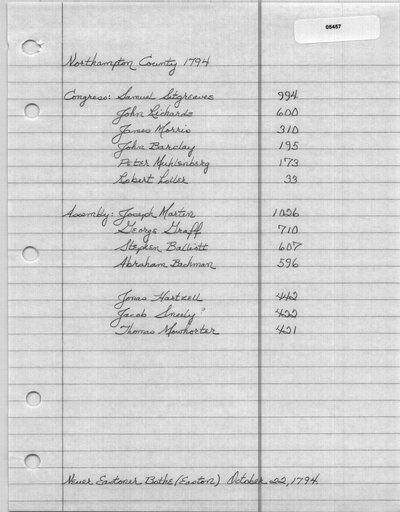 05457
Northampton County 1794
Congress: Samuel Sitgreaves 994
John Richards 600
James Morris 310
John Barclay 195
Peter Muhlenberg 173
Robert Loller 33
Assembly: Joseph Martin 1026
George Graff 710
Stephen Balliett 607
Abraham Bachman 596
Jonas Hartzell 442
Jacob Sneely? 422
Thomas Mewhorter 421
Neuer Eastoner Bothe (Easton) October 22, 1794